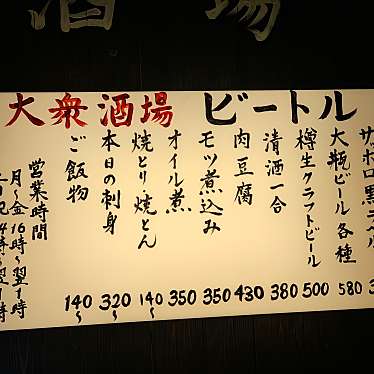 酒場
大衆酒場 ビートル
サッポロ黒ラベル
大瓶ビール各種 580
樽生クラフトビール 500
清酒一合 380
肉豆腐 430
モツ煮込み 350
オイル煮 350
焼とり・焼とん 140〜
本日の刺身 320〜
ご飯物 140〜
営業時間
月〜金 16時〜翌1時